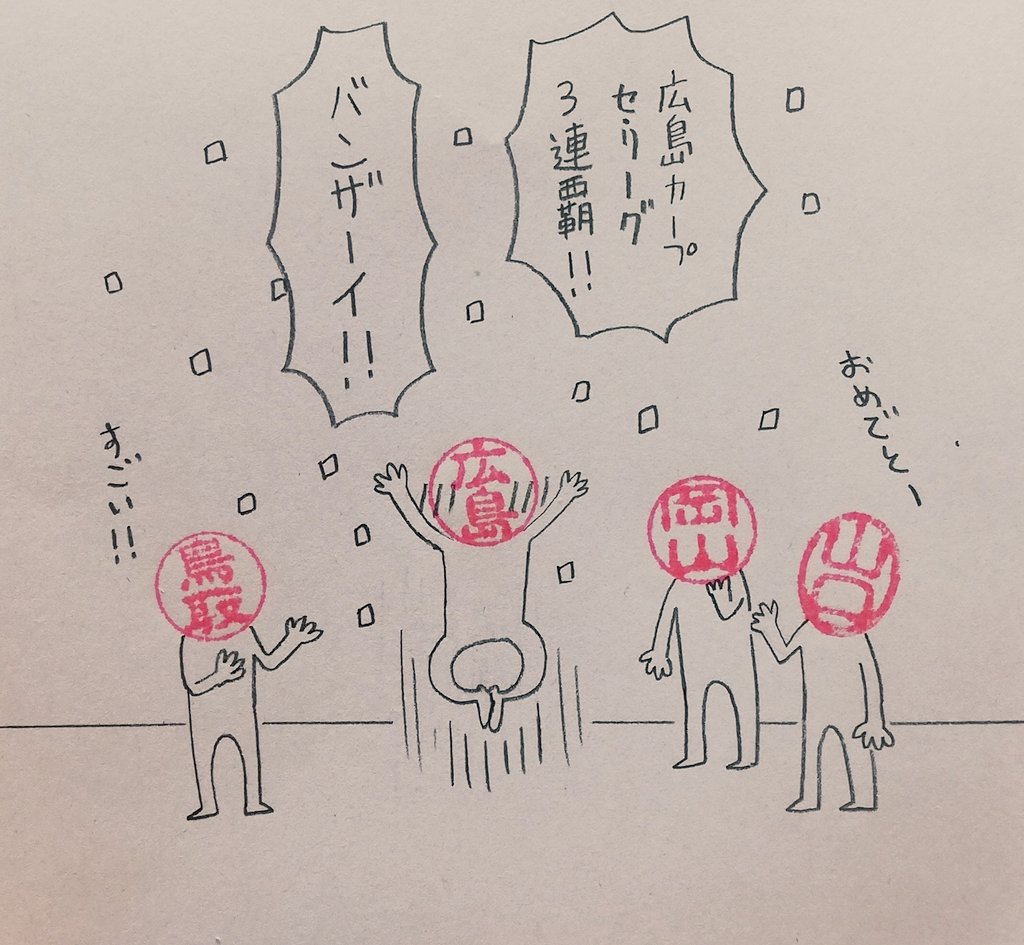 広島カープ
セリーグ
3連覇!!
バンザーイ!!
おめでとー
すごい!!
鳥取
広島
岡山
山口